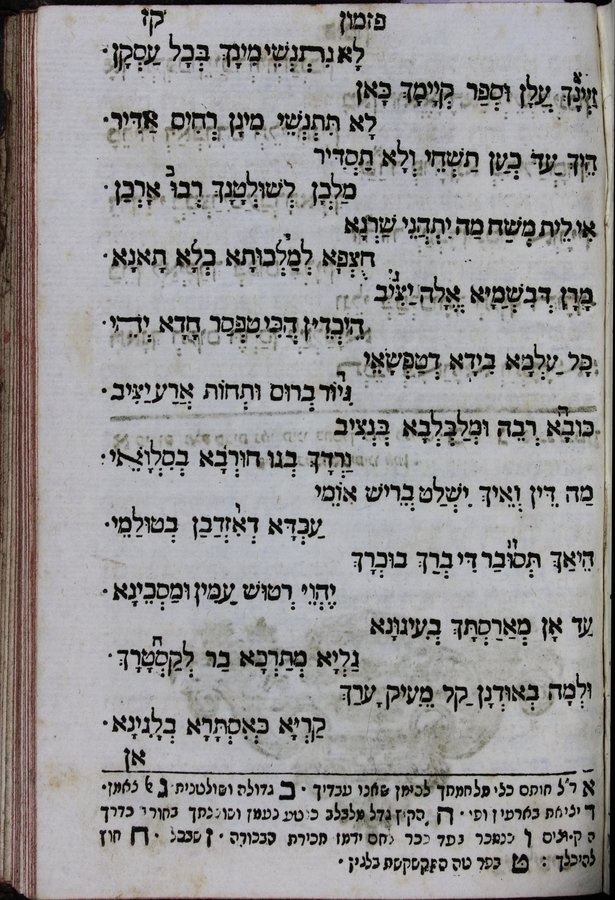 פזמון קז
לָא נִתְנְשֵׁי מִינָךְ בְּכָל עַסְקָן׃
וְזַיְינָךְ עֲלָן וּסְפַר קְיָימָךְ כָּאן
לָא תִּתְנְשֵׁי מִינָן רְחִים אַדִּיר׃
הֵיךְ עַד כְּעַן תַּשְׁחֵי וְלָא תַסְדִּיר
מַלְכָן לְשׁוּלְטָנָךְ רְבוּ אָרְכָן׃
אִי לֵית מְשַׁח מַה יִתְהֲנֵי שְׁרָגָא
חֲצִפָא לְמַלְכוּתָא בְּלָא תָאגָא׃
מָרָן דְּבִשְׁמַיָּא אֱלָהּ יַצִּיב
הֵיכְדֵין הֲכִי טִפְסַר חֲדָא יְדִידִי׃
כָּל עָלְמָא בִּידָא דְטַפְשָׂאֵי
גִּיּוֹר בְּרוּם וּתְחוֹת אֲרַע יַצִּיב׃
כּוּבָּא רְבֵה וּמְלַבְלְבָא כְּנָצִיב
וַרְדָּךְ בְּגוֹ חוּרְבָא בְּסִלְוָאֵי׃
מַה דֵּין וְאֵיךְ יִשְׁלַט בְּרֵישׁ אוּמֵּי
עַבְדָּא דְאִזְדַּבַּן בְּטוּלְמֵי׃
הֵיאַךְ תְּסוֹבַר דִּי בְרָךְ בּוּכְרָךְ
יֶהֱוֵי רְטוּשׁ עַמִּין וּמַסְכֵּינָא׃
עַד אָן מְאָרַסְתָּךְ בְּעִיגּוּנָא
גַּלְיָא מְתַרְכָא בַּר לְקַסְטְרָךְ׃
וּלְמָה בְּאוּדְנָן קַל מֵעִיק עָרָךְ
קַרְיָא כְּאִסְתְּרָא בְּלָגִינָא׃
אן
א ר״ל חותם כלי מלחמתך לסימן שאנו עבדיך · ב גדולה ושולטנית ג של נאמן·
ד יציאת בארעין ופי׳ · ה הקוץ גדל מלבלב
ו כנמכר בעד ככר לחם ידמז מכירת הבכורה · ז שבבל · ח חוץ
להיכלך ׃ ט כפר טה המקשקשת בלגין ·